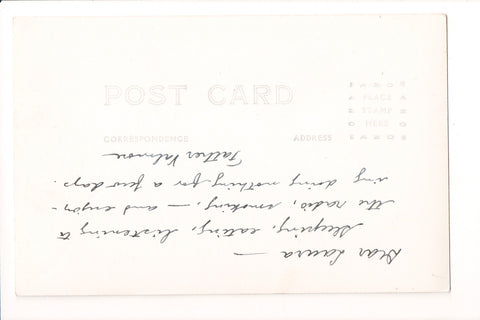 POST CARD
PLACE
STAMP
HERE
CORRESPONDENCE
ADDRESS
Dear Laura —
Sleeping, eating, listening to
the radio, smoking, — and enjoy-
ing doing nothing for a few days.
Father